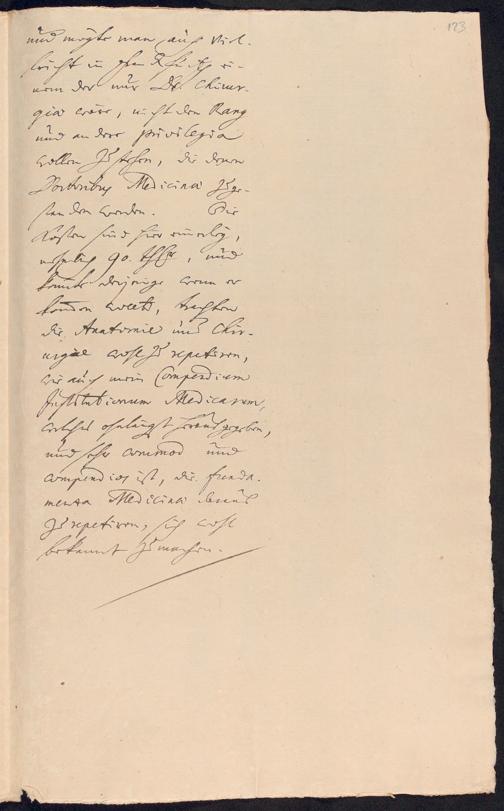 123
und mögte man auch viel-
leicht in ei-
nem der nur Dr. Chirur-
giæ wäre, nicht den Rang
und andere privilegia
wollen zustehen, die denen
Doctoribus Medicinæ zuge-
standen werden. Die
Kosten sind hier einerley,
nehmlich 90. thlr, und
könnte derjenige wenn er
kommen wollte, trachten
die Anatomie und Chir-
urgie wohl zu repetiren,
wie auch mein Compendium
Institutionum Medicarum,
welches ohnlängst herausgegeben,
und sehr commod und
compendios ist, die funda-
menta Medicinæ daraus
zu repetiren, sich wohl
bekannt zu machen.